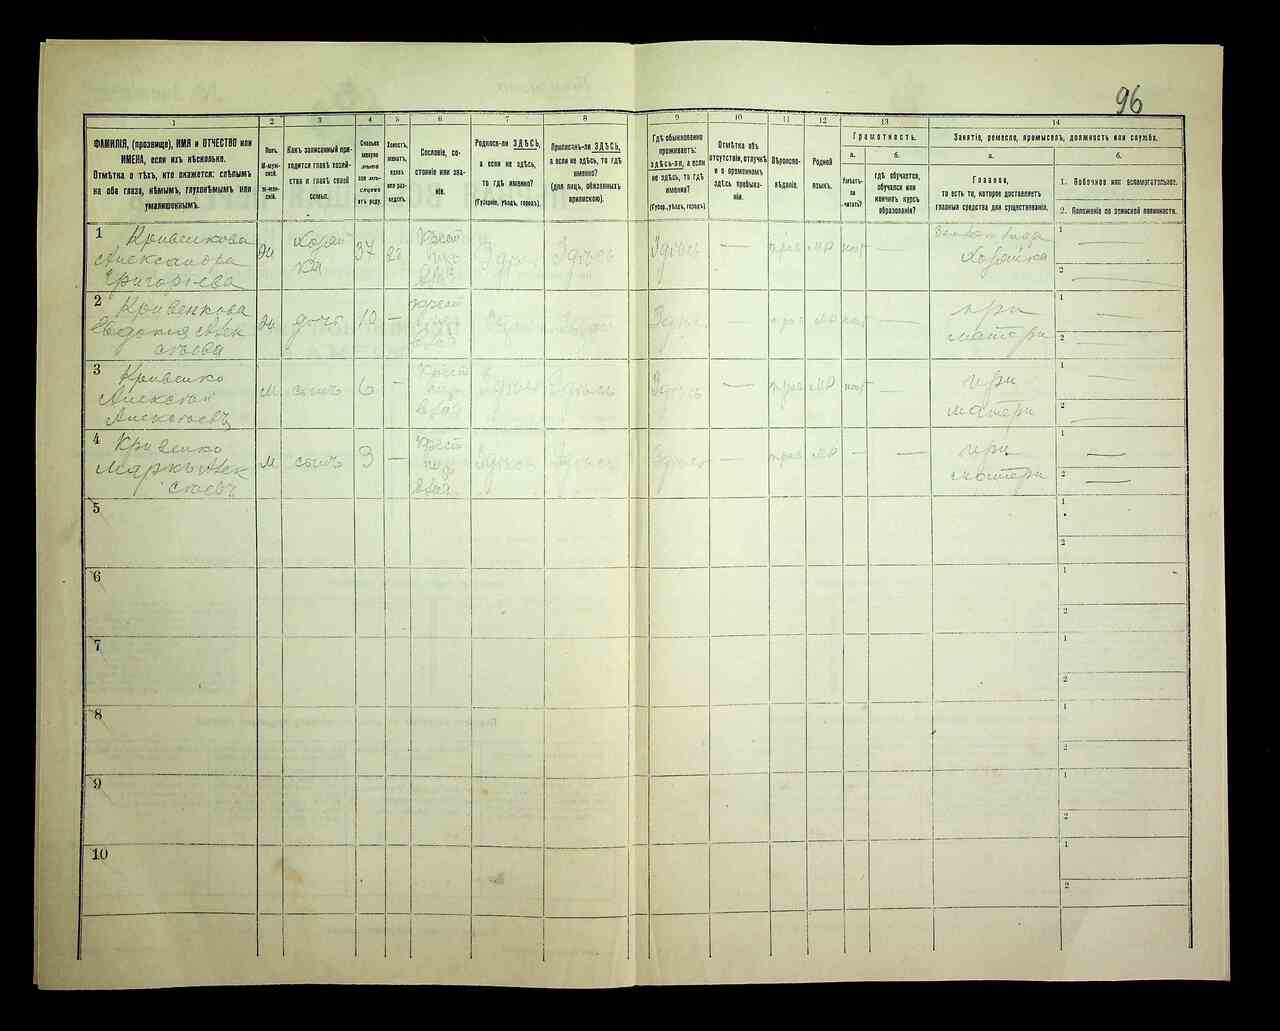 96
1 2 3 4 5 6 7 8 9 10 11 12 13 14
ФАМИЛІЯ, (прозвище), ИМЯ и ОТЧЕСТВО или
ИМЕНА, если ихъ нѣсколько.
Отмѣтка о тѣхъ, кто окажется: слѣпымъ
на оба глаза, нѣмымъ, глухонѣмымъ или
умалишеннымъ.
Полъ.
М-муж-
ской.
Ж-жен-
скій.
Какъ записанный при-
ходится главѣ хозяй-
ства и главѣ своей
семьи.
Сословіе, со-
стояніе или зва-
ніе.
Родился-ли ЗДѢСЬ,
а если не здѣсь,
то гдѣ именно?
(Губернія, уѣздъ, городъ).
Приписанъ-ли ЗДѢСЬ,
а если не здѣсь, то гдѣ
именно?
(для лицъ, обязанныхъ
припискою).
Гдѣ обыкновенно
проживаетъ:
здѣсь-ли, а если
не здѣсь, то гдѣ
именно?
(Губер., уѣздъ, городъ).
Отмѣтка объ
отсутствіи, отлучкѣ
и о временномъ
здѣсь пребыва-
ніи.
Вѣроиспо-
вѣданіе.
Родной
языкъ.
Грамотность.
а.
Умѣетъ-
ли
читать?
б.
гдѣ обучается,
обучался или
кончилъ курсъ
образованія?
Занятіе, ремесло, промыселъ, должность или служба.
а.
Главное,
то есть то, которое доставляетъ
главныя средства для существованія.
б.
1. Побочное или вспомогательное.
2. Положеніе по воинской повинности.
1 Кривенкова
Александра
Григорьева
Жи
Хозяй
ка
37
Крест
Здѣсь
Здѣсь
Здѣсь
— прав мр нѣт —
Хозяйка
1
2
2 Кривенкова
Евдокія Алек
сѣева
Жи дочь 10 —
Здѣсь
— прав мр нѣт
при
матери
1
2
3 Кривенко
Алексѣй
Алексѣевъ
м сынъ 6 —
Крест
Здѣсь Здѣсь Здѣсь
— прав мр нѣт —
при
матери
1
2
4 Кривенко
Маркъ Алек
сѣевъ
м сынъ 3 —
Крест
Здѣсь Здѣсь Здѣсь
— прав мр — —
при
матери
1
2
5 1
2
6 1
2
7 1
2
8 1
2
9 1
2
10 1
2